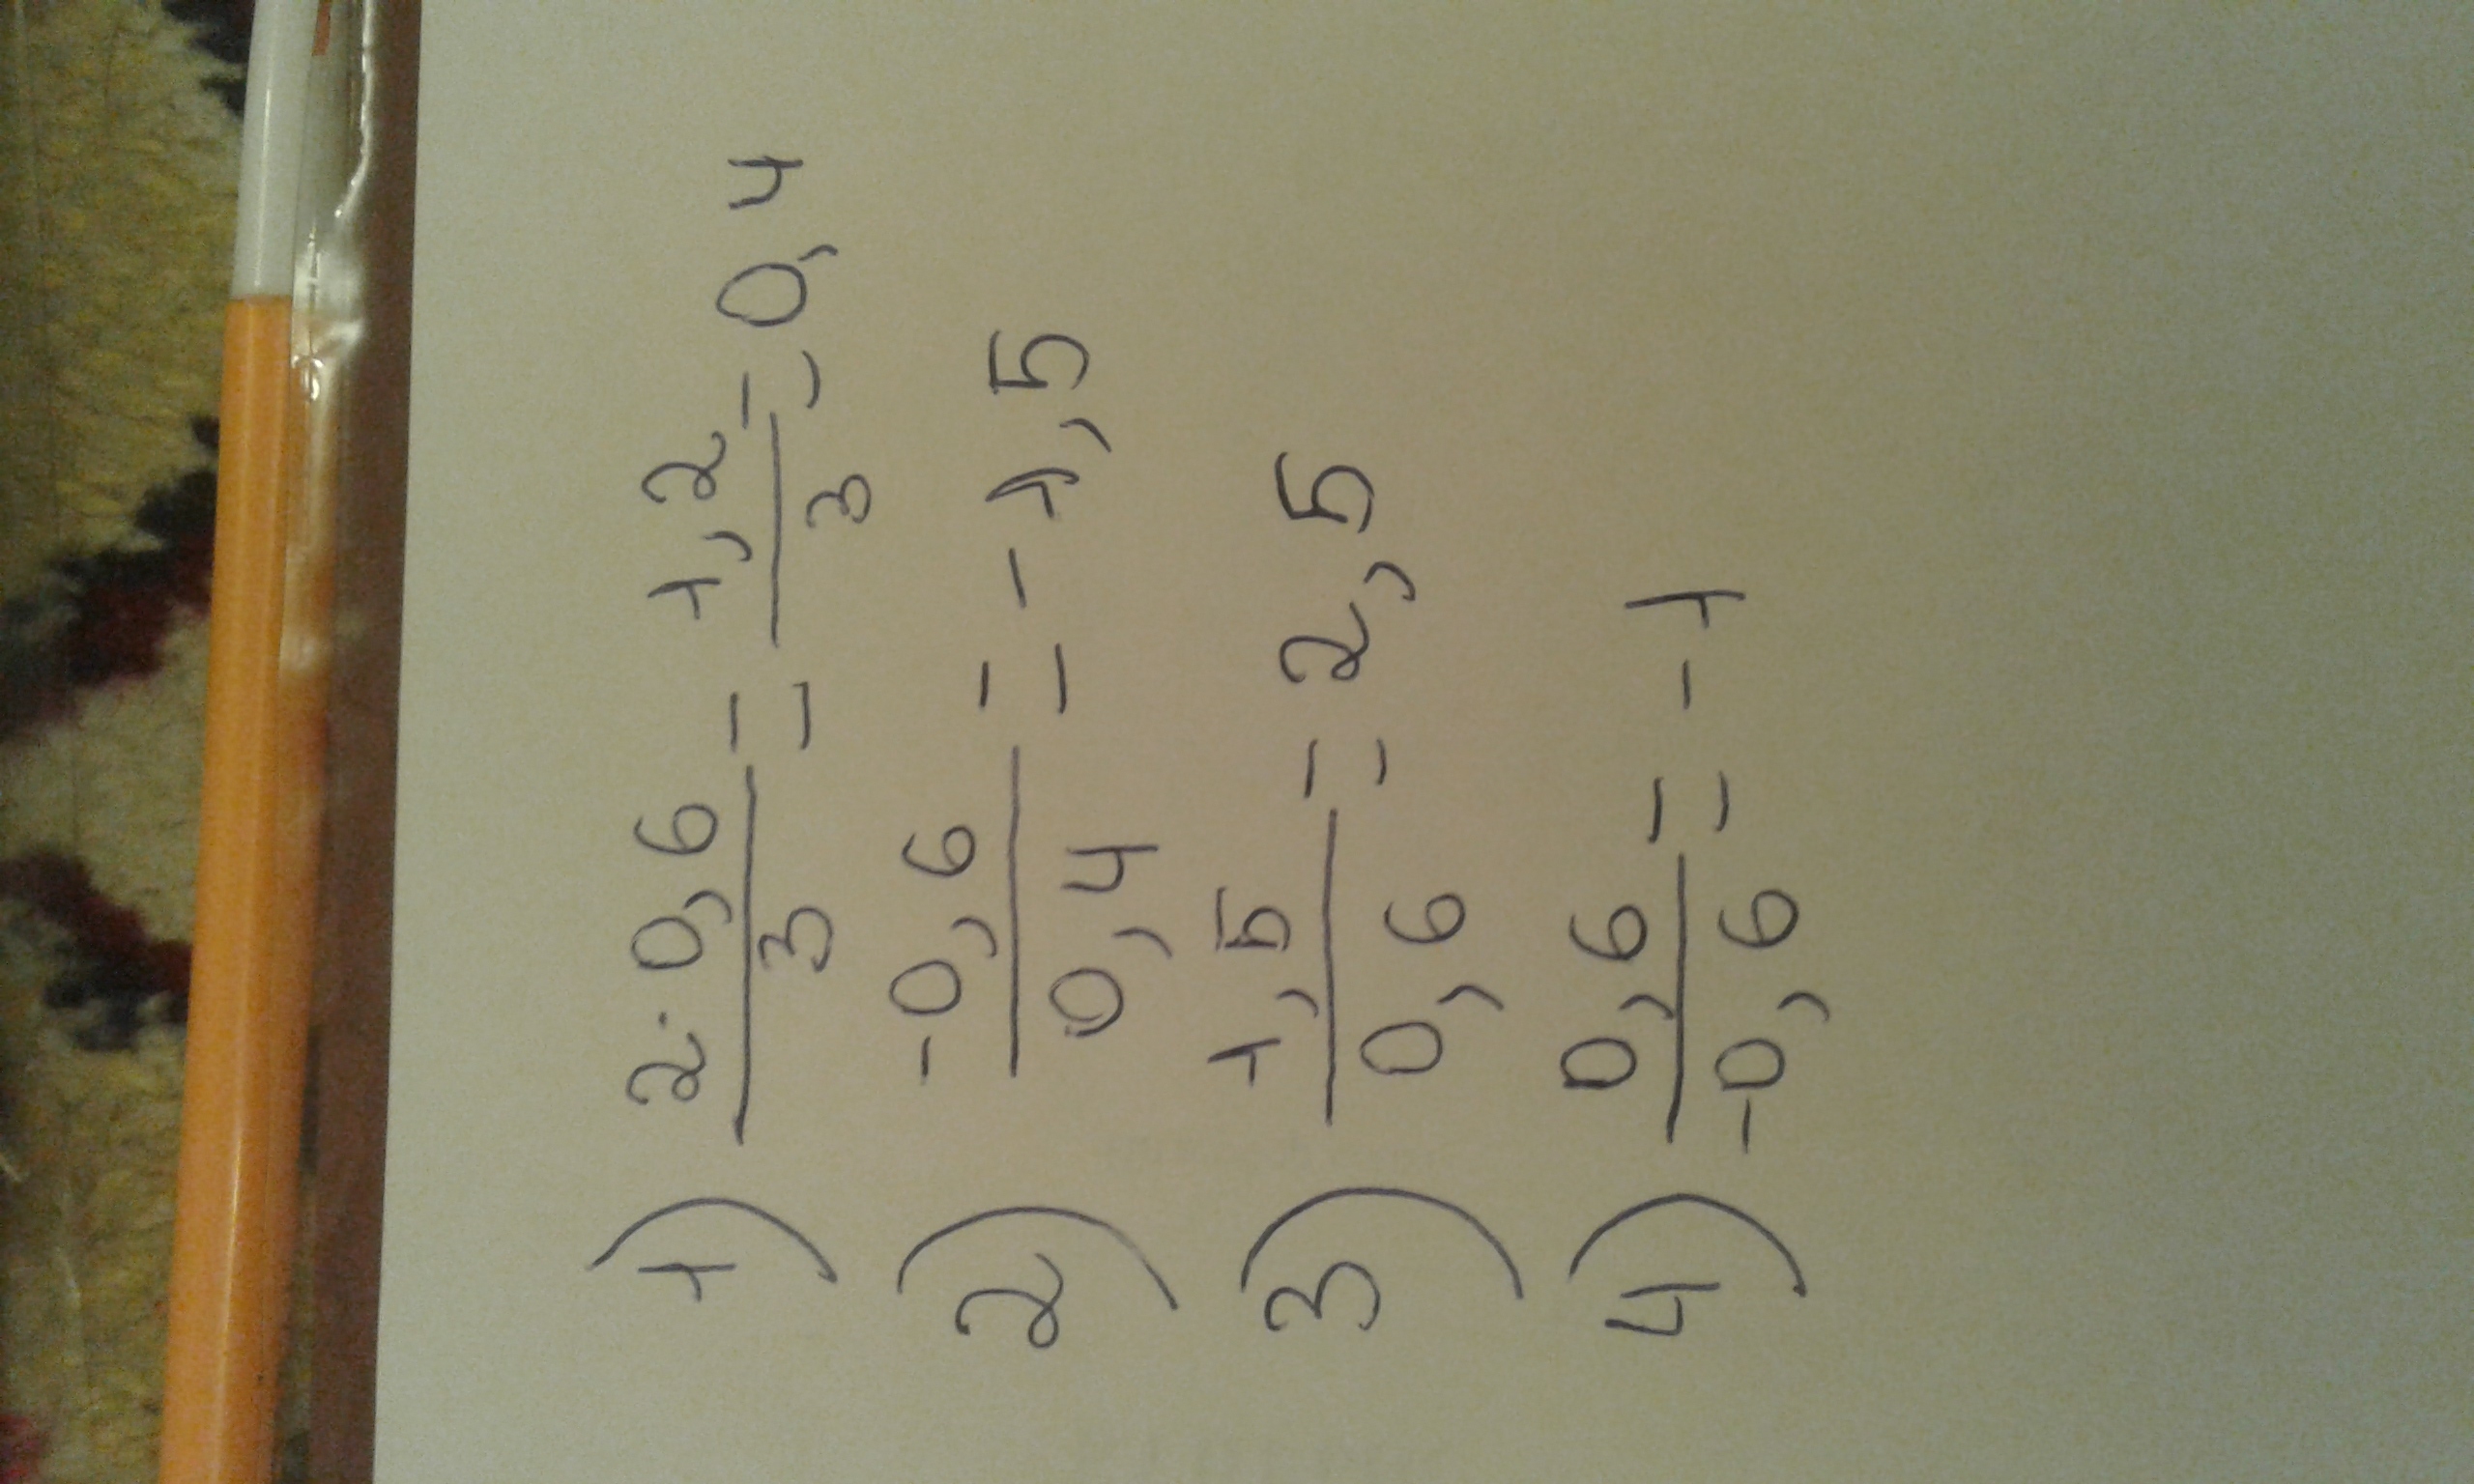 1) 2·0,6/3 = 1,2/3 = 0,4
2) -0,6/0,4 = -1,5
3) 1,5/0,6 = 2,5
4) 0,6/-0,6 = -1